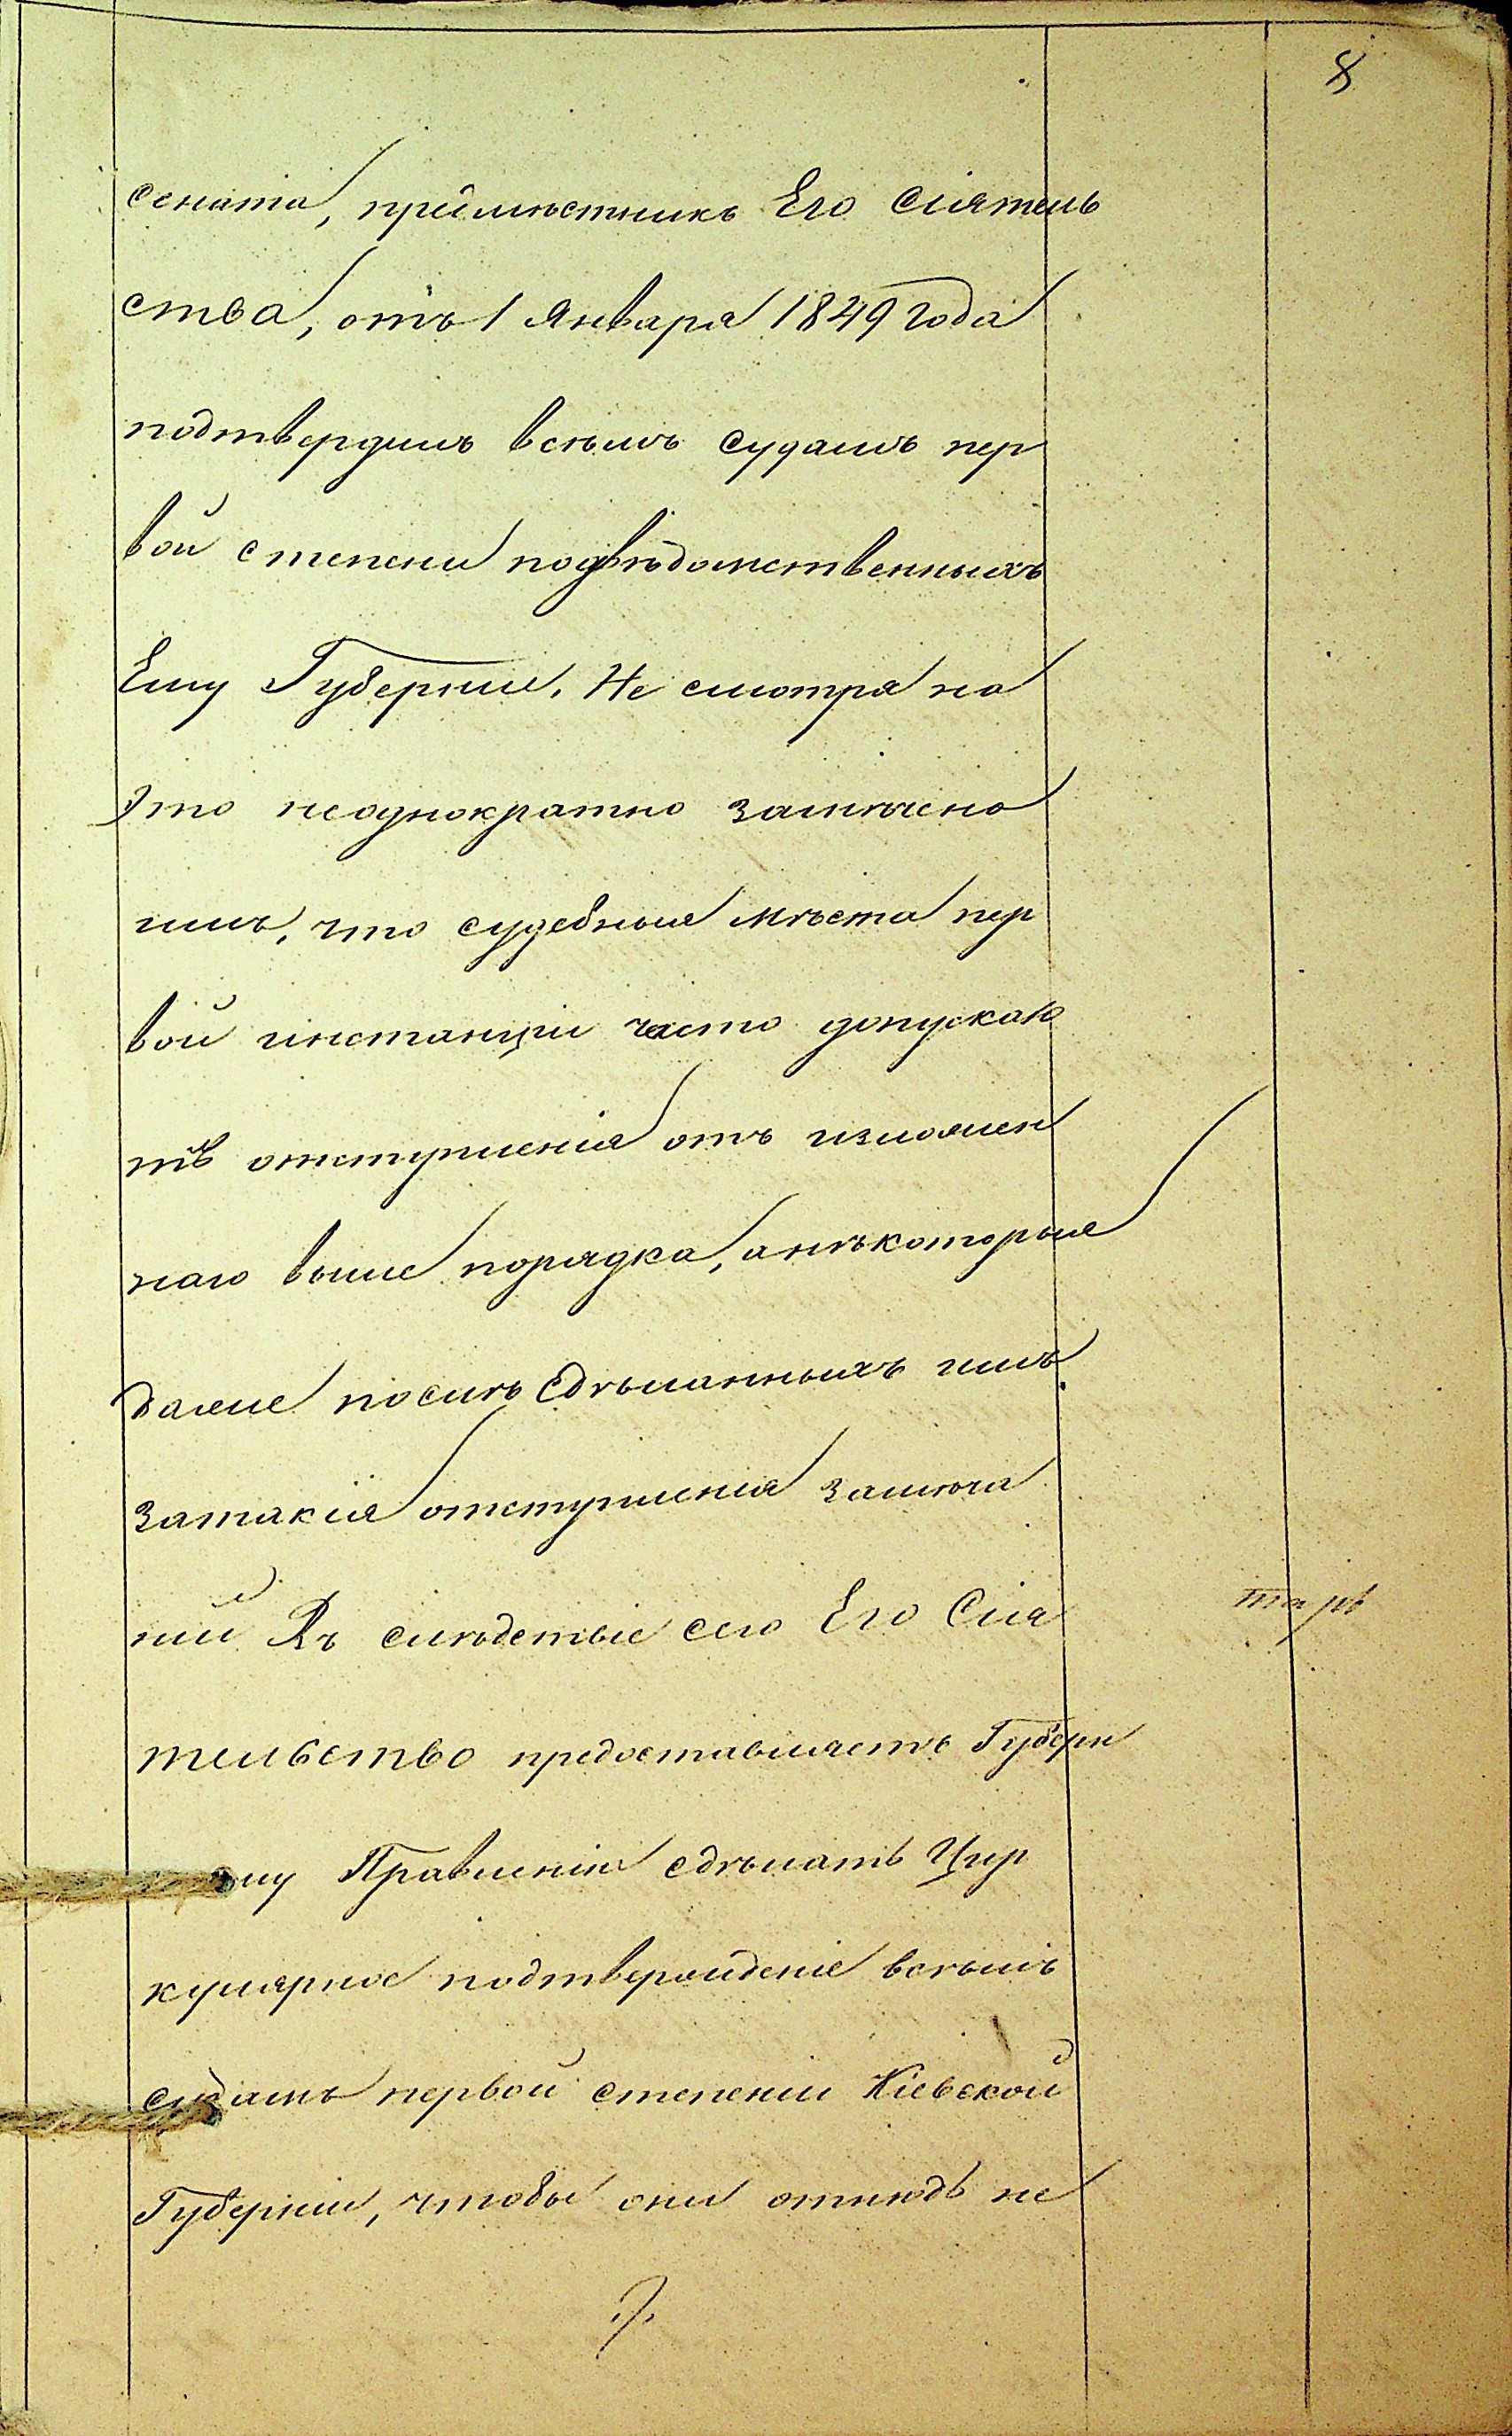 8
сената, преимѣстникъ Его Сіятель
ства, отъ 1 Января 1849 года
подтвердилъ всѣмъ судамъ пер
вой степени подвѣдомственныхъ
Ему Губерніи. Не смотря на
это неоднократно замѣчено
имъ, что судебныя мѣста пер
вой инстанціи часто допускаю
тъ отступленія отъ изложен
наго выше порядка, а нѣкоторыя
даже послѣ сдѣланныхъ имъ
за такія отступленія замѣча
ній Въ слѣдствіе сего Его Сія
тельство предоставляетъ Губерн
ому Правленію сдѣлать Цир
кулярное подтвержденіе всѣмъ
судамъ первой степени Кіевской
Губерніи, чтобы они отнюдь не